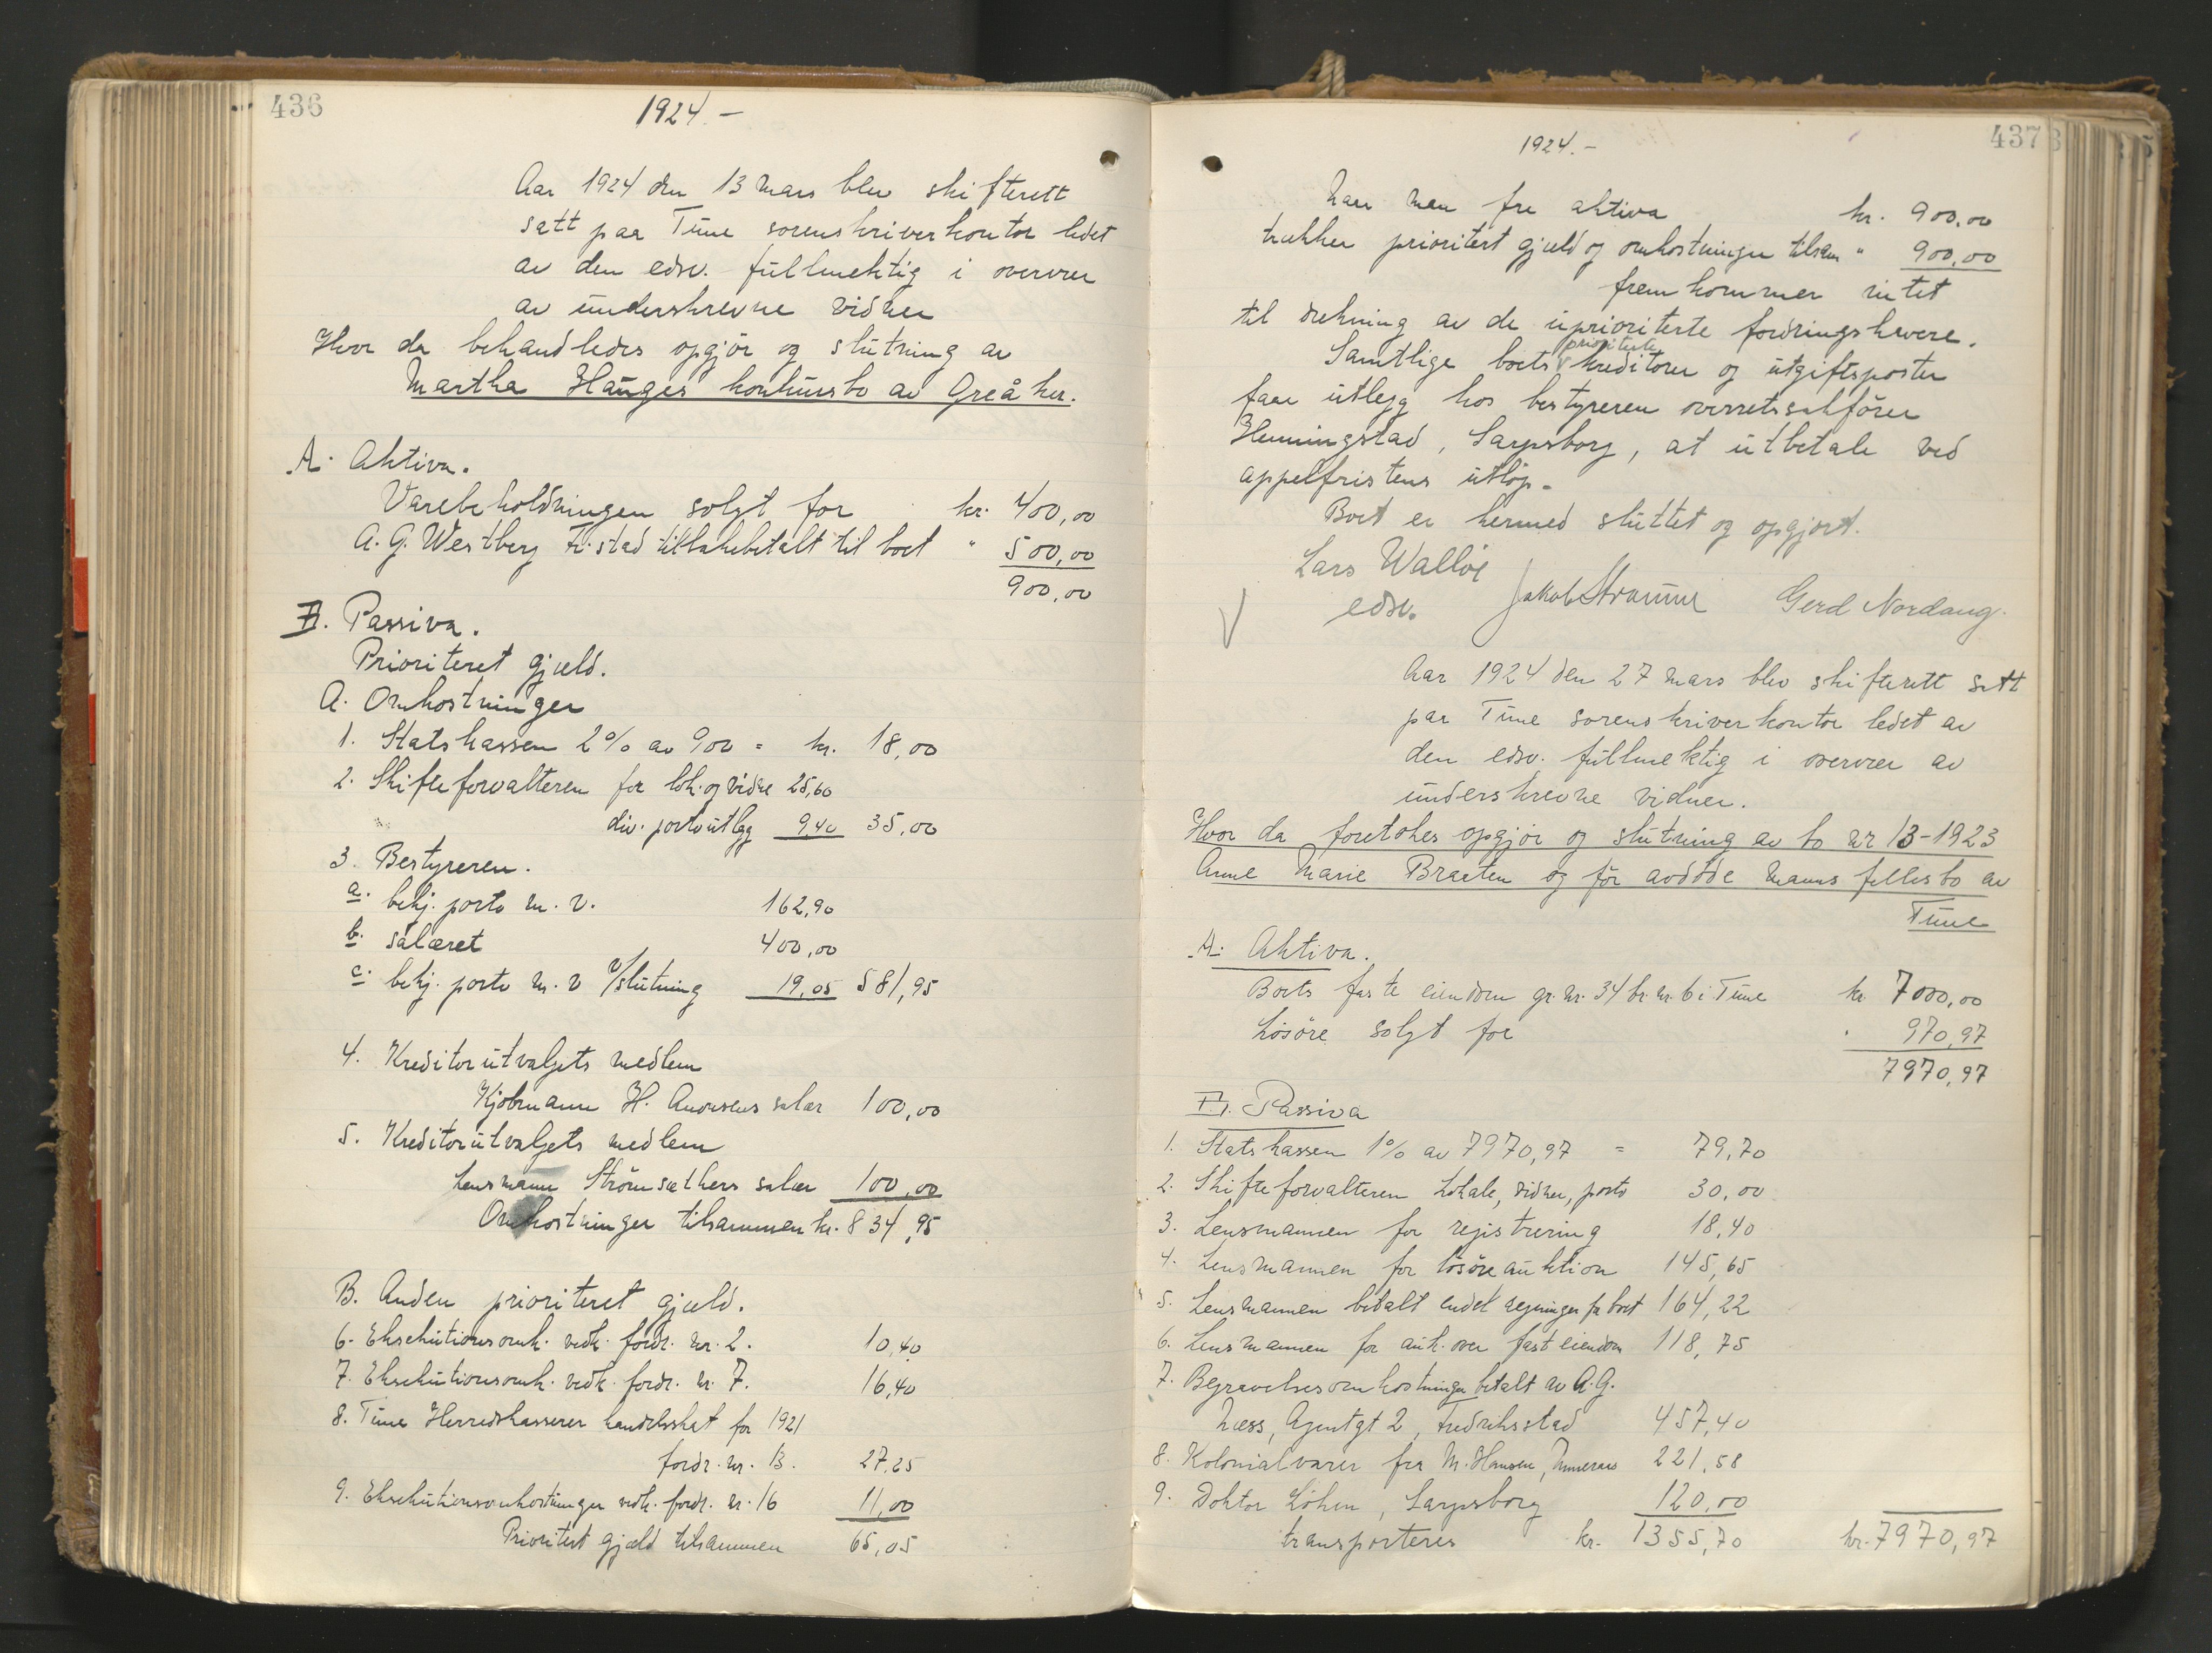 436
1924.-
Aar 1924 den 13 mars blev skifterett
satt paa Tune sorenskriverkontor ledet
av den edsv. fullmektig i overvær
av underskrevne vidner
Hvor da behandledes opgjør og slutning av
Martha Hauges konkursbo av Greåker.
A. Aktiva.
Varebeholdningen solgt for kr. 400,00
A. G. Westberg Fr.stad tilbakebetalt til boet " 500,00
900,00
B. Passiva.
Prioriteret gjæld.
A. Omkostninger
1. Statskassen 2% av 900 = kr. 18,00
2. Skifteforvalteren for lok. og vidne 25,60
div. portoutlæg 9,40 35,00
3. Bestyreren.
a. bekj. porto m. v. 162,90
b. salæret 400,00
c. bekj. porto m. v v/slutning 19,05 581,95
4. Kreditorutvalgets medlem
Kjøbmann H. Andersens salær 100,00
5. Kreditorutvalgets medlem
Lensmann Strömsæthers salær 100,00
Omkostninger tilsammen kr. 834,95
B. Anden prioriteret gjæld.
6. Eksekutionsomk. vedk. fordr. nr. 2. 10,40
7. Eksekutionsomk. vedk. fordr. nr. 7. 16,40
8. Tune Herredskasserer handelsskat for 1921
fordr. nr. 13. 27,25
9. Eksekutionsomkostninger vedk. fordr. nr. 16 11,00
Prioritert gjæld tilsammen 65,05
437
1924.-
Naar man fra aktiva kr. 900,00
trækker prioritert gjæld og omkostninger tilsam " 900,00
fremkommer intet
til dækning av de uprioriterte fordringshavere.
Samtlige boets prioriterte kreditorer og utgiftsposter
faar utlegg hos bestyreren overretssakfører
Henningstad, Sarpsborg, at utbetale ved
appelfristens utløp.
Boet er hermed sluttet og opgjort.
Lars Walløe
edsv. Jakob Straume Gerd Nordaug.
Aar 1924 den 27 mars blev skifterett satt
paa Tune sorenskriverkontor ledet av
den edsv. fullmektig i overvær av
underskrevne vidner.
Hvor da foretokes opgjør og slutning av bo nr 13-1923
Anne Marie Braaten og før avdøde manns fellesbo av
Tune
A. Aktiva.
Boets faste eiendom gr. nr. 34 br. nr. 6 i Tune kr 7000,00
Løsøre solgt for " 970,97
7970,97
B. Passiva
1. Statskassen 1% av 7970,97 = 79,70
2. Skifteforvalteren Lokale, vidner, porto 30,00
3. Lensmannen for registrering 18,40
4. Lensmannen for løsøreauktion 145,65
5. Lensmannen betalt endel regninger for boet 164,22
6. Lensmannen for auk. over fast eiendom 118,75
7. Begravelsesomkostninger betalt av A. G.
Næss, Agentgt 2, Fredriksstad 457,40
8. Kolonialvarer fra M. Hansen, 221,58
9. Doktor Løken, Sarpsborg 120,00
transporteres kr. 1355,70 kr. 7970,97